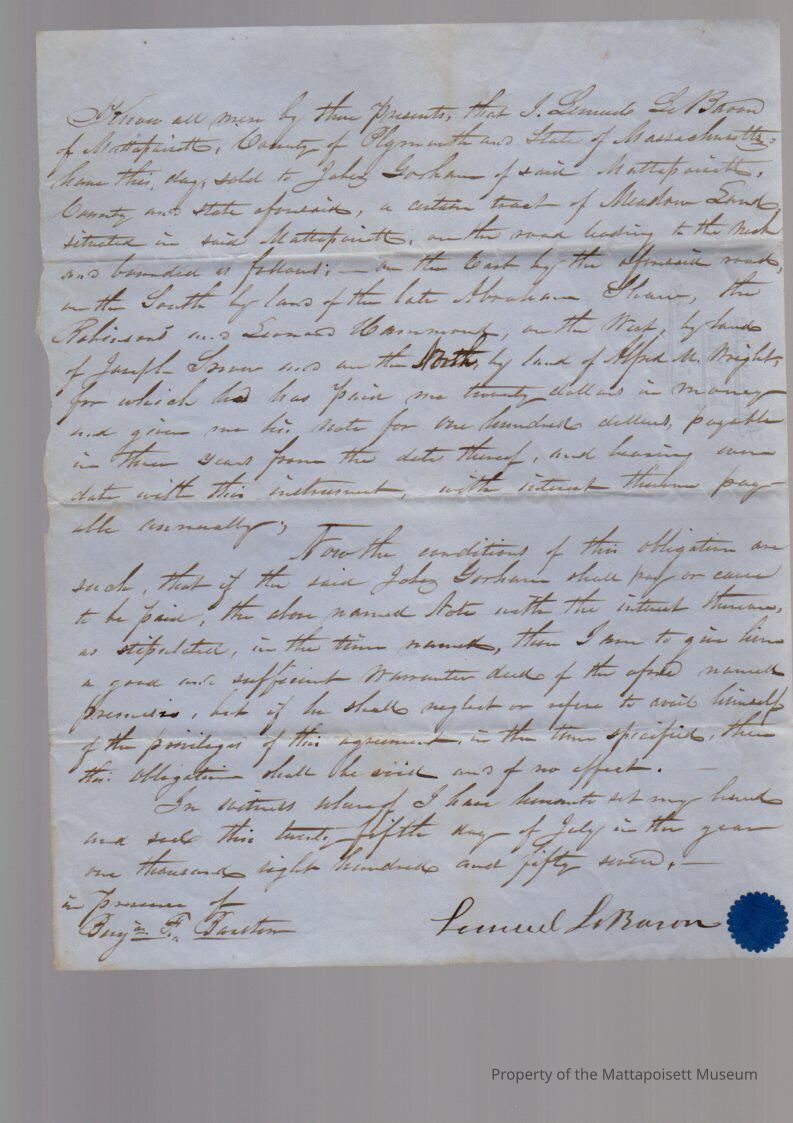 Know all men by these Presents, that I, Lemuel LeBaron
of Mattapoisett, County of Plymouth and State of Massachusetts,
have this day, sold to Jabez Gorham of said Mattapoisett,
County and State aforesaid, a certain tract of Meadow Land
situated in said Mattapoisett, on the road leading to the Neck
and bounded as follows; — on the East by the aforesaid road,
on the South by land of the late Abraham Shaw, the
Robinsons and Leonard Hammond, on the West, by land
of Joseph Snow and on the North, by land of Alfred M. Wright,
for which he has paid me twenty dollars in money
and given me his note for one hundred dollars, payable
in three years from the date thereof, and bearing even
date with this instrument, with interest thereon pay-
able annually;
Now the conditions of this obligation are
such, that if the said Jabez Gorham shall pay or cause
to be paid, the above named Note with the interest thereon,
as stipulated, in the time named, then I am to give him
a good and sufficient Warrantee deed of the afore named
premises, but if he shall neglect or refuse to avail himself
of the privileges of this agreement, in the time specified, then
this obligation shall be void and of no effect. —
In witness whereof I have hereunto set my hand
and seal this twenty fifth day of July in the year
one thousand eight hundred and fifty seven, —
in presence of
Benjn. F. Barstow
Lemuel LeBaron
Property of the Mattapoisett Museum